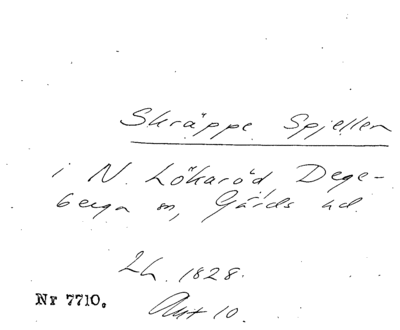 Skräppe Spjellen
i N. Lökaröd Dege-
berga sn, Gärds hd.
Lh. 1828.
Nr 7710.
Akt 10